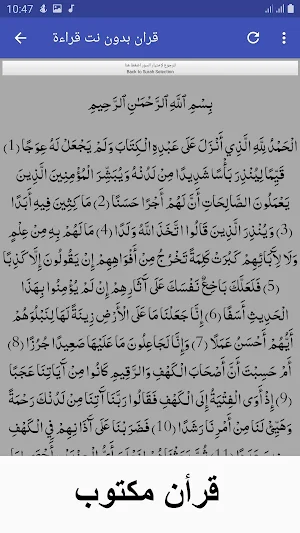 10:47
قران بدون نت قراءة
للرجوع لاختيار السور اضغط هنا
Back to Surah Selection
بِسْمِ اللَّهِ الرَّحْمَٰنِ الرَّحِيمِ
الْحَمْدُ لِلَّهِ الَّذِي أَنْزَلَ عَلَىٰ عَبْدِهِ الْكِتَابَ وَلَمْ يَجْعَلْ لَهُ عِوَجًا (1)
قَيِّمًا لِيُنْذِرَ بَأْسًا شَدِيدًا مِنْ لَدُنْهُ وَيُبَشِّرَ الْمُؤْمِنِينَ الَّذِينَ
يَعْمَلُونَ الصَّالِحَاتِ أَنَّ لَهُمْ أَجْرًا حَسَنًا (2) مَاكِثِينَ فِيهِ أَبَدًا
(3) وَيُنْذِرَ الَّذِينَ قَالُوا اتَّخَذَ اللَّهُ وَلَدًا (4) مَا لَهُمْ بِهِ مِنْ عِلْمٍ
وَلَا لِآبَائِهِمْ كَبُرَتْ كَلِمَةً تَخْرُجُ مِنْ أَفْوَاهِهِمْ إِنْ يَقُولُونَ إِلَّا كَذِبًا
(5) فَلَعَلَّكَ بَاخِعٌ نَفْسَكَ عَلَىٰ آثَارِهِمْ إِنْ لَمْ يُؤْمِنُوا بِهَٰذَا
الْحَدِيثِ أَسَفًا (6) إِنَّا جَعَلْنَا مَا عَلَى الْأَرْضِ زِينَةً لَهَا لِنَبْلُوَهُمْ
أَيُّهُمْ أَحْسَنُ عَمَلًا (7) وَإِنَّا لَجَاعِلُونَ مَا عَلَيْهَا صَعِيدًا جُرُزًا (8)
أَمْ حَسِبْتَ أَنَّ أَصْحَابَ الْكَهْفِ وَالرَّقِيمِ كَانُوا مِنْ آيَاتِنَا عَجَبًا
(9) إِذْ أَوَى الْفِتْيَةُ إِلَى الْكَهْفِ فَقَالُوا رَبَّنَا آتِنَا مِنْ لَدُنْكَ رَحْمَةً
وَهَيِّئْ لَنَا مِنْ أَمْرِنَا رَشَدًا (10) فَضَرَبْنَا عَلَىٰ آذَانِهِمْ فِي الْكَهْفِ
قرأن مكتوب